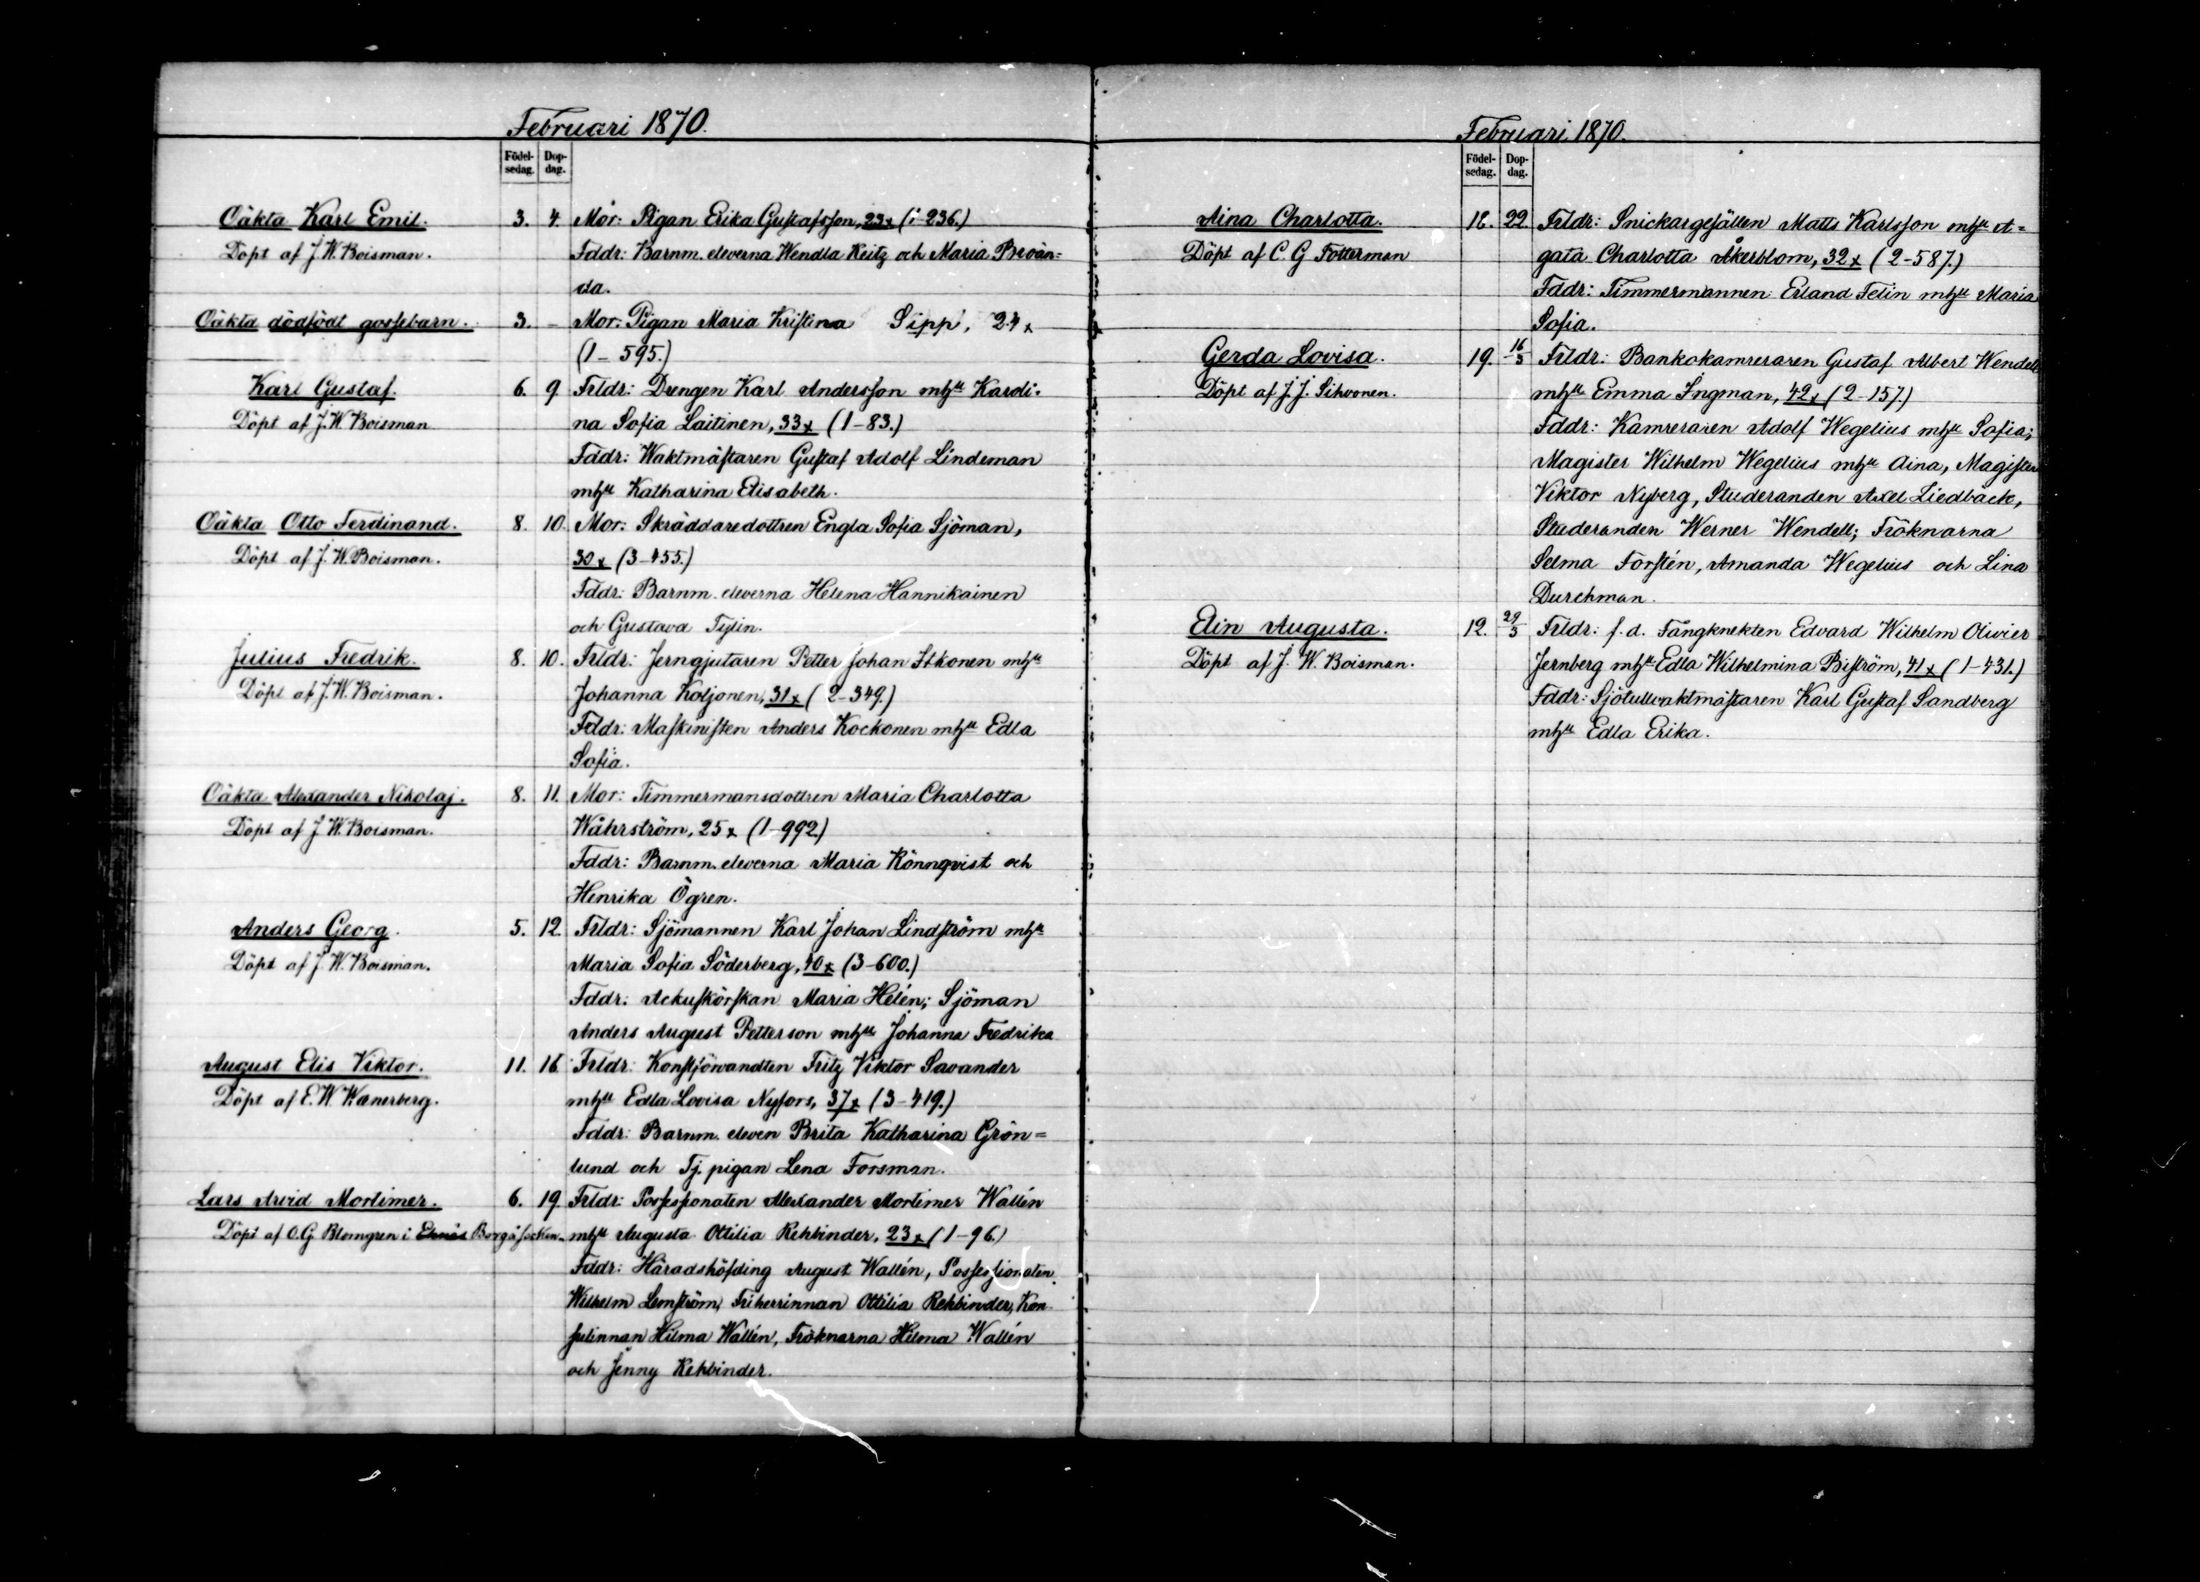 Februari 1870.
Födel-
sedag.
Dop-
dag.
Oäkta Karl Emil.
Döpt af J. W. Boisman.
3. 4. Mor: Pigan Erika Gustafsson, 23x (1-236.)
Fddr: Barnm. eleverna Wendla Reitz och Maria
da.
Oäkta dödfödt gossebarn.
3. - Mor: Pigan Maria Kristina Sipp, 24x
(1-595.)
Karl Gustaf.
Döpt af J. W. Boisman
6. 9. Frldr: Drengen Karl Andersson mhu Karoli-
na Sofia Laitinen, 33x (1-83.)
Fddr: Waktmästaren Gustaf Adolf Lindeman
mhu Katharina Elisabeth.
Oäkta Otto Ferdinand.
Döpt af J. W. Boisman.
8. 10. Mor: Skräddaredottren Engla Sofia Sjöman,
30x (3-455.)
Fddr: Barnm. eleverna Helena Hannikainen
och Gustava Tylin.
Julius Fredrik.
Döpt af J. W. Boisman.
8. 10. Frldr: Jerngjutaren Petter Johan Itkonen mhu
Johanna Koljonen, 31x (2-349.)
Fddr: Maskinisten Anders Kockonen mhu Edla
Sofia.
Oäkta Alexander Nikolaj.
Döpt af J. W. Boisman.
8. 11. Mor: Timmermansdottren Maria Charlotta
Wåhrström, 25x (1-992)
Fddr: Barnm. eleverna Maria Rönnqvist och
Henrika Ögren.
Anders Georg.
Döpt af J. W. Boisman.
5. 12. Frldr: Sjömannen Karl Johan Lindström mhu
Maria Sofia Söderberg, 40x (3-600.)
Fddr: Ackuskörskan Maria Helén; Sjöman
Anders August Petterson mhu Johanna Fredrika
August Elis Viktor.
Döpt af E. W. Wænerberg.
11. 16. Frldr: Konstförvandten Fritz Viktor Savander
mhu Edla Lovisa Nyfors, 37x (3-419.)
Fddr: Barnm. eleven Brita Katharina Grön=
lund och Tj. pigan Lena Forsman.
Lars Arvid Mortimer.
Döpt af O. G. Blomgren i Borgå socken.
6. 19. Frldr: Possessionaten Alexander Mortimer Wallén
mhu Augusta Ottilia Rehbinder, 23x (1-96.)
Fddr: Häradshöfding August Wallén, Possessionaten
Wilhelm Lemström, Friherrinnan Ottilia Rehbinder, Kon-
sulinnan Hilma Wallén, Fröknarna Hilma Wallén
och Jenny Rehbinder.
Februari 1870.
Födel-
sedag.
Dop-
dag.
Aina Charlotta.
Döpt af C. G Totterman
18. 22. Frldr: Snickargesällen Matts Karlsson mhu A=
gata Charlotta Åkerblom, 32x (2-587.)
Fddr: Timmermannen Erland Felin mhu Maria
Sofia.
Gerda Lovisa.
Döpt af J. J. Sihvonen.
19. 16/3 Frldr: Bankokamreraren Gustaf Albert Wendell
mhu Emma Ingman, 42x (2-157.)
Fddr: Kamreraren Adolf Wegelius mhu Sofia;
Magister Wilhelm Wegelius mhu Aina, Magister
Viktor Nyberg, Studeranden Axel Liedbäck,
Studeranden Werner Wendell; Fröknarna
Selma Forstén, Amanda Wegelius och Lina
Durchman.
Elin Augusta.
Döpt af J. W. Boisman.
12. 29/3 Frldr: f. d. Fångknekten Edvard Wilhelm Olivier
Jernberg mhu Edla Wilhelmina Biström, 41x (1-431.)
Fddr: Sjötullvaktmästaren Karl Gustaf Sandberg
mhu Edla Erika.